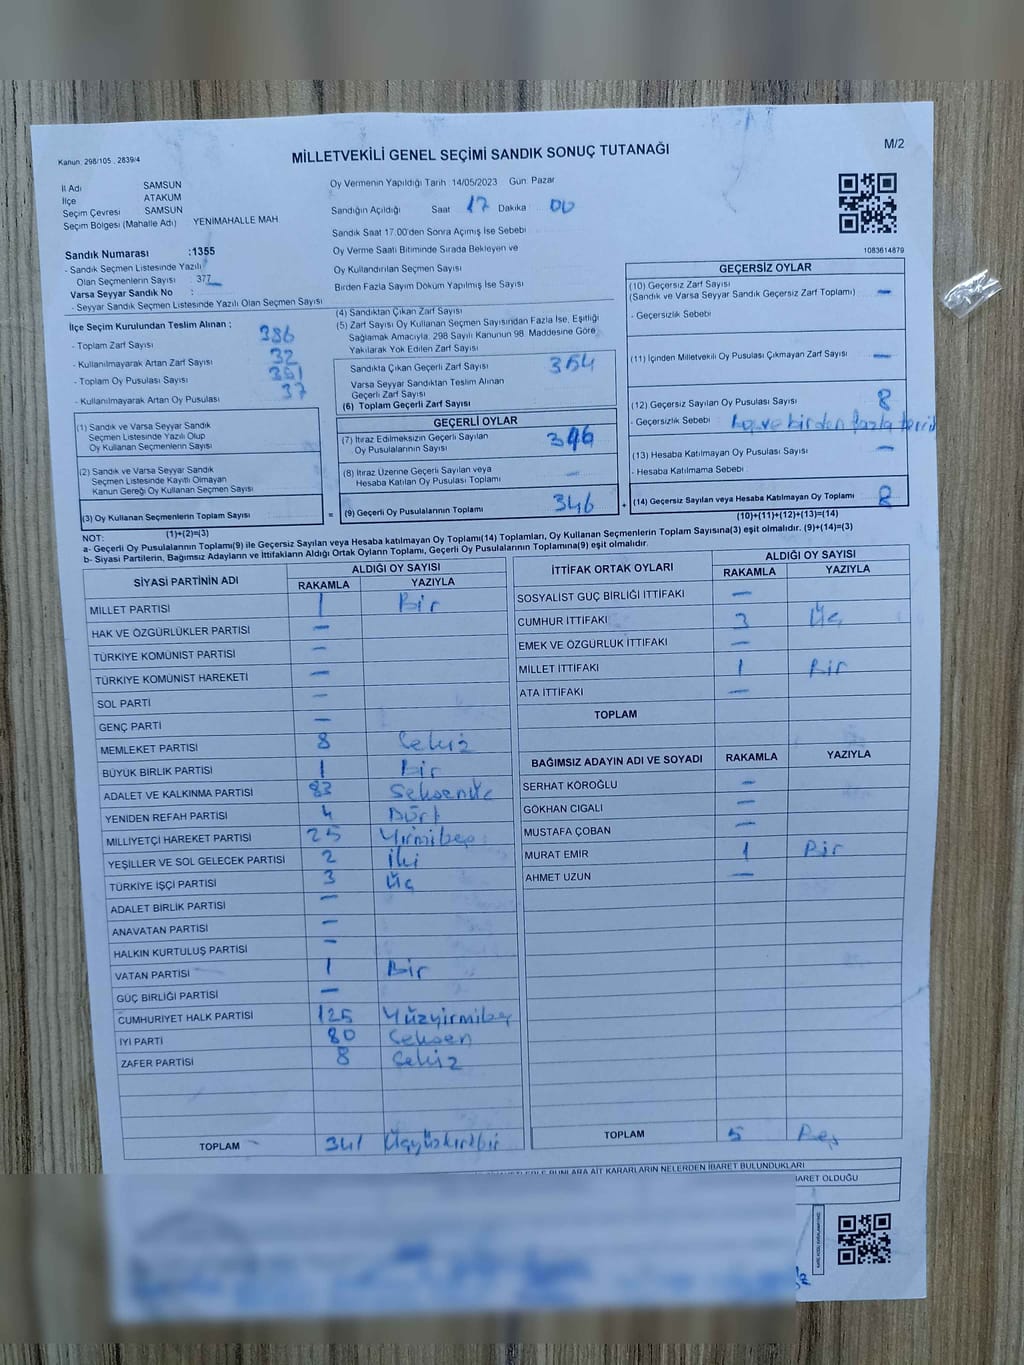 Kanun: 298/105 , 2839/4
MİLLETVEKİLİ GENEL SEÇİMİ SANDIK SONUÇ TUTANAĞI
M/2
İl Adı SAMSUN
İlçe ATAKUM
Seçim Çevresi SAMSUN
Seçim Bölgesi (Mahalle Adı) YENİMAHALLE MAH
Oy Vermenin Yapıldığı Tarih 14/05/2023 Gün: Pazar
Sandığın Açıldığı Saat 17 Dakika 00
Sandık Saat 17.00'den Sonra Açımış İse Sebebi
Oy Verme Saati Bitiminde Sırada Bekleyen ve
Oy Kullandırılan Seçmen Sayısı
Birden Fazla Sayım Döküm Yapılmış İse Sayısı
1083614879
Sandık Numarası :1355
- Sandık Seçmen Listesinde Yazılı
Olan Seçmenlerin Sayısı : 377
Varsa Seyyar Sandık No :
- Seyyar Sandık Seçmen Listesinde Yazılı Olan Seçmen Sayısı
İlçe Seçim Kurulundan Teslim Alınan ;
- Toplam Zarf Sayısı 386
- Kullanılmayarak Artan Zarf Sayısı 32
- Toplam Oy Pusulası Sayısı
- Kullanılmayarak Artan Oy Pusulası 37
(1) Sandık ve Varsa Seyyar Sandık
Seçmen Listesinde Yazılı Olup
Oy Kullanan Seçmenlerin Sayısı
(2) Sandık ve Varsa Seyyar Sandık
Seçmen Listesinde Kayıtlı Olmayan
Kanun Gereği Oy Kullanan Seçmen Sayısı
(3) Oy Kullanan Seçmenlerin Toplam Sayısı
(1)+(2)=(3)
(4) Sandıktan Çıkan Zarf Sayısı
(5) Zarf Sayısı Oy Kullanan Seçmen Sayısından Fazla İse, Eşitliği
Sağlamak Amacıyla, 298 Sayılı Kanunun 98. Maddesine Göre
Yakılarak Yok Edilen Zarf Sayısı
Sandıkta Çıkan Geçerli Zarf Sayısı 354
Varsa Seyyar Sandıktan Teslim Alınan
Geçerli Zarf Sayısı
(6) Toplam Geçerli Zarf Sayısı
GEÇERLİ OYLAR
(7) İtiraz Edilmeksizin Geçerli Sayılan
Oy Pusulalarının Sayısı 346
(8) İtiraz Üzerine Geçerli Sayılan veya
Hesaba Katılan Oy Pusulası Toplamı —
= (9) Geçerli Oy Pusulalarının Toplamı 346 +
GEÇERSİZ OYLAR
(10) Geçersiz Zarf Sayısı
(Sandık ve Varsa Seyyar Sandık Geçersiz Zarf Toplamı) —
- Geçersizlik Sebebi
(11) İçinden Milletvekili Oy Pusulası Çıkmayan Zarf Sayısı —
(12) Geçersiz Sayılan Oy Pusulası Sayısı 8
- Geçersizlik Sebebi ve birden fazla
(13) Hesaba Katılmayan Oy Pusulası Sayısı —
- Hesaba Katılmama Sebebi
(14) Geçersiz Sayılan veya Hesaba Katılmayan Oy Toplamı 8
(10)+(11)+(12)+(13)=(14)
NOT:
a- Geçerli Oy Pusulalarının Toplamı(9) ile Geçersiz Sayılan veya Hesaba Katılmayan Oy Toplamı(14) Toplamları, Oy Kullanan Seçmenlerin Toplam Sayısına(3) eşit olmalıdır. (9)+(14)=(3)
b- Siyasi Partilerin, Bağımsız Adayların ve İttifakların Aldığı Ortak Oyların Toplamı, Geçerli Oy Pusulalarının Toplamına(9) eşit olmalıdır.
SİYASİ PARTİNİN ADI ALDIĞI OY SAYISI
RAKAMLA YAZIYLA
MİLLET PARTİSİ 1 Bir
HAK VE ÖZGÜRLÜKLER PARTİSİ —
TÜRKİYE KOMÜNİST PARTİSİ —
TÜRKİYE KOMÜNİST HAREKETİ —
SOL PARTİ —
GENÇ PARTİ —
MEMLEKET PARTİSİ 8 Sekiz
BÜYÜK BİRLİK PARTİSİ 1 Bir
ADALET VE KALKINMA PARTİSİ 83 Seksenüç
YENİDEN REFAH PARTİSİ 4 Dört
MİLLİYETÇİ HAREKET PARTİSİ 25 Yirmibeş
YEŞİLLER VE SOL GELECEK PARTİSİ 2 İki
TÜRKİYE İŞÇİ PARTİSİ 3 Üç
ADALET BİRLİK PARTİSİ —
ANAVATAN PARTİSİ —
HALKIN KURTULUŞ PARTİSİ —
VATAN PARTİSİ 1 Bir
GÜÇ BİRLİĞİ PARTİSİ —
CUMHURİYET HALK PARTİSİ 125 Yüzyirmibeş
İYİ PARTİ 80 Seksen
ZAFER PARTİSİ 8 Sekiz
TOPLAM 341 Üçyüzkırkbir
İTTİFAK ORTAK OYLARI ALDIĞI OY SAYISI
RAKAMLA YAZIYLA
SOSYALİST GÜÇ BİRLİĞİ İTTİFAKI —
CUMHUR İTTİFAKI 3 Üç
EMEK VE ÖZGÜRLÜK İTTİFAKI —
MİLLET İTTİFAKI 1 Bir
ATA İTTİFAKI —
TOPLAM
BAĞIMSIZ ADAYIN ADI VE SOYADI RAKAMLA YAZIYLA
SERHAT KÖROĞLU —
GÖKHAN CIGALI —
MUSTAFA ÇOBAN —
MURAT EMİR 1 Bir
AHMET UZUN —
TOPLAM 5 Beş
BUNLARA AİT KARARLARIN NELERDEN İBARET BULUNDUKLARI
İBARET OLDUĞU